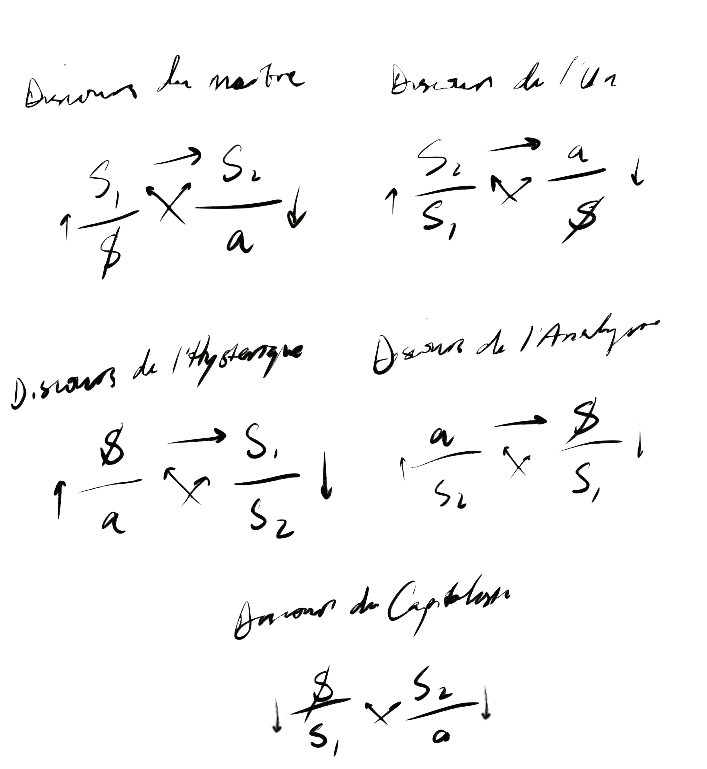 Discours du maître
Discours de l'Un
↑ S₁/$ → S₂/a ↓
↑ S₂/S₁ → a/$ ↓
Discours de l'Hysterique
Discours de l'Analyse
↑ $/a → S₁/S₂ ↓
↑ a/S₂ → $/S₁ ↓
Discours du Capitaliste
↓ $/S₁ S₂/a ↓